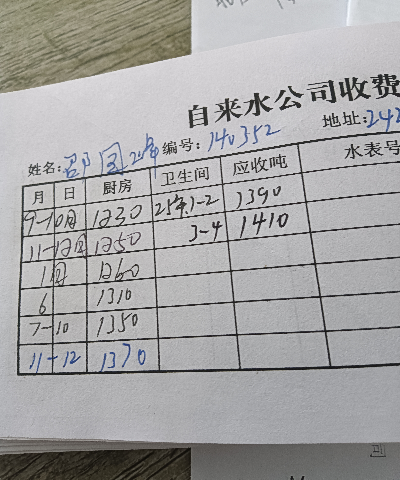 自来水公司收费
姓名: 邵 编号: 140352 地址: 242
月 日 厨房 卫生间 应收吨 水表号
9-10月 1230 25年.1-2 1390
11-12月 1250 3-4 1410
1月 1260
6 1310
7-10 1350
11-12 1370